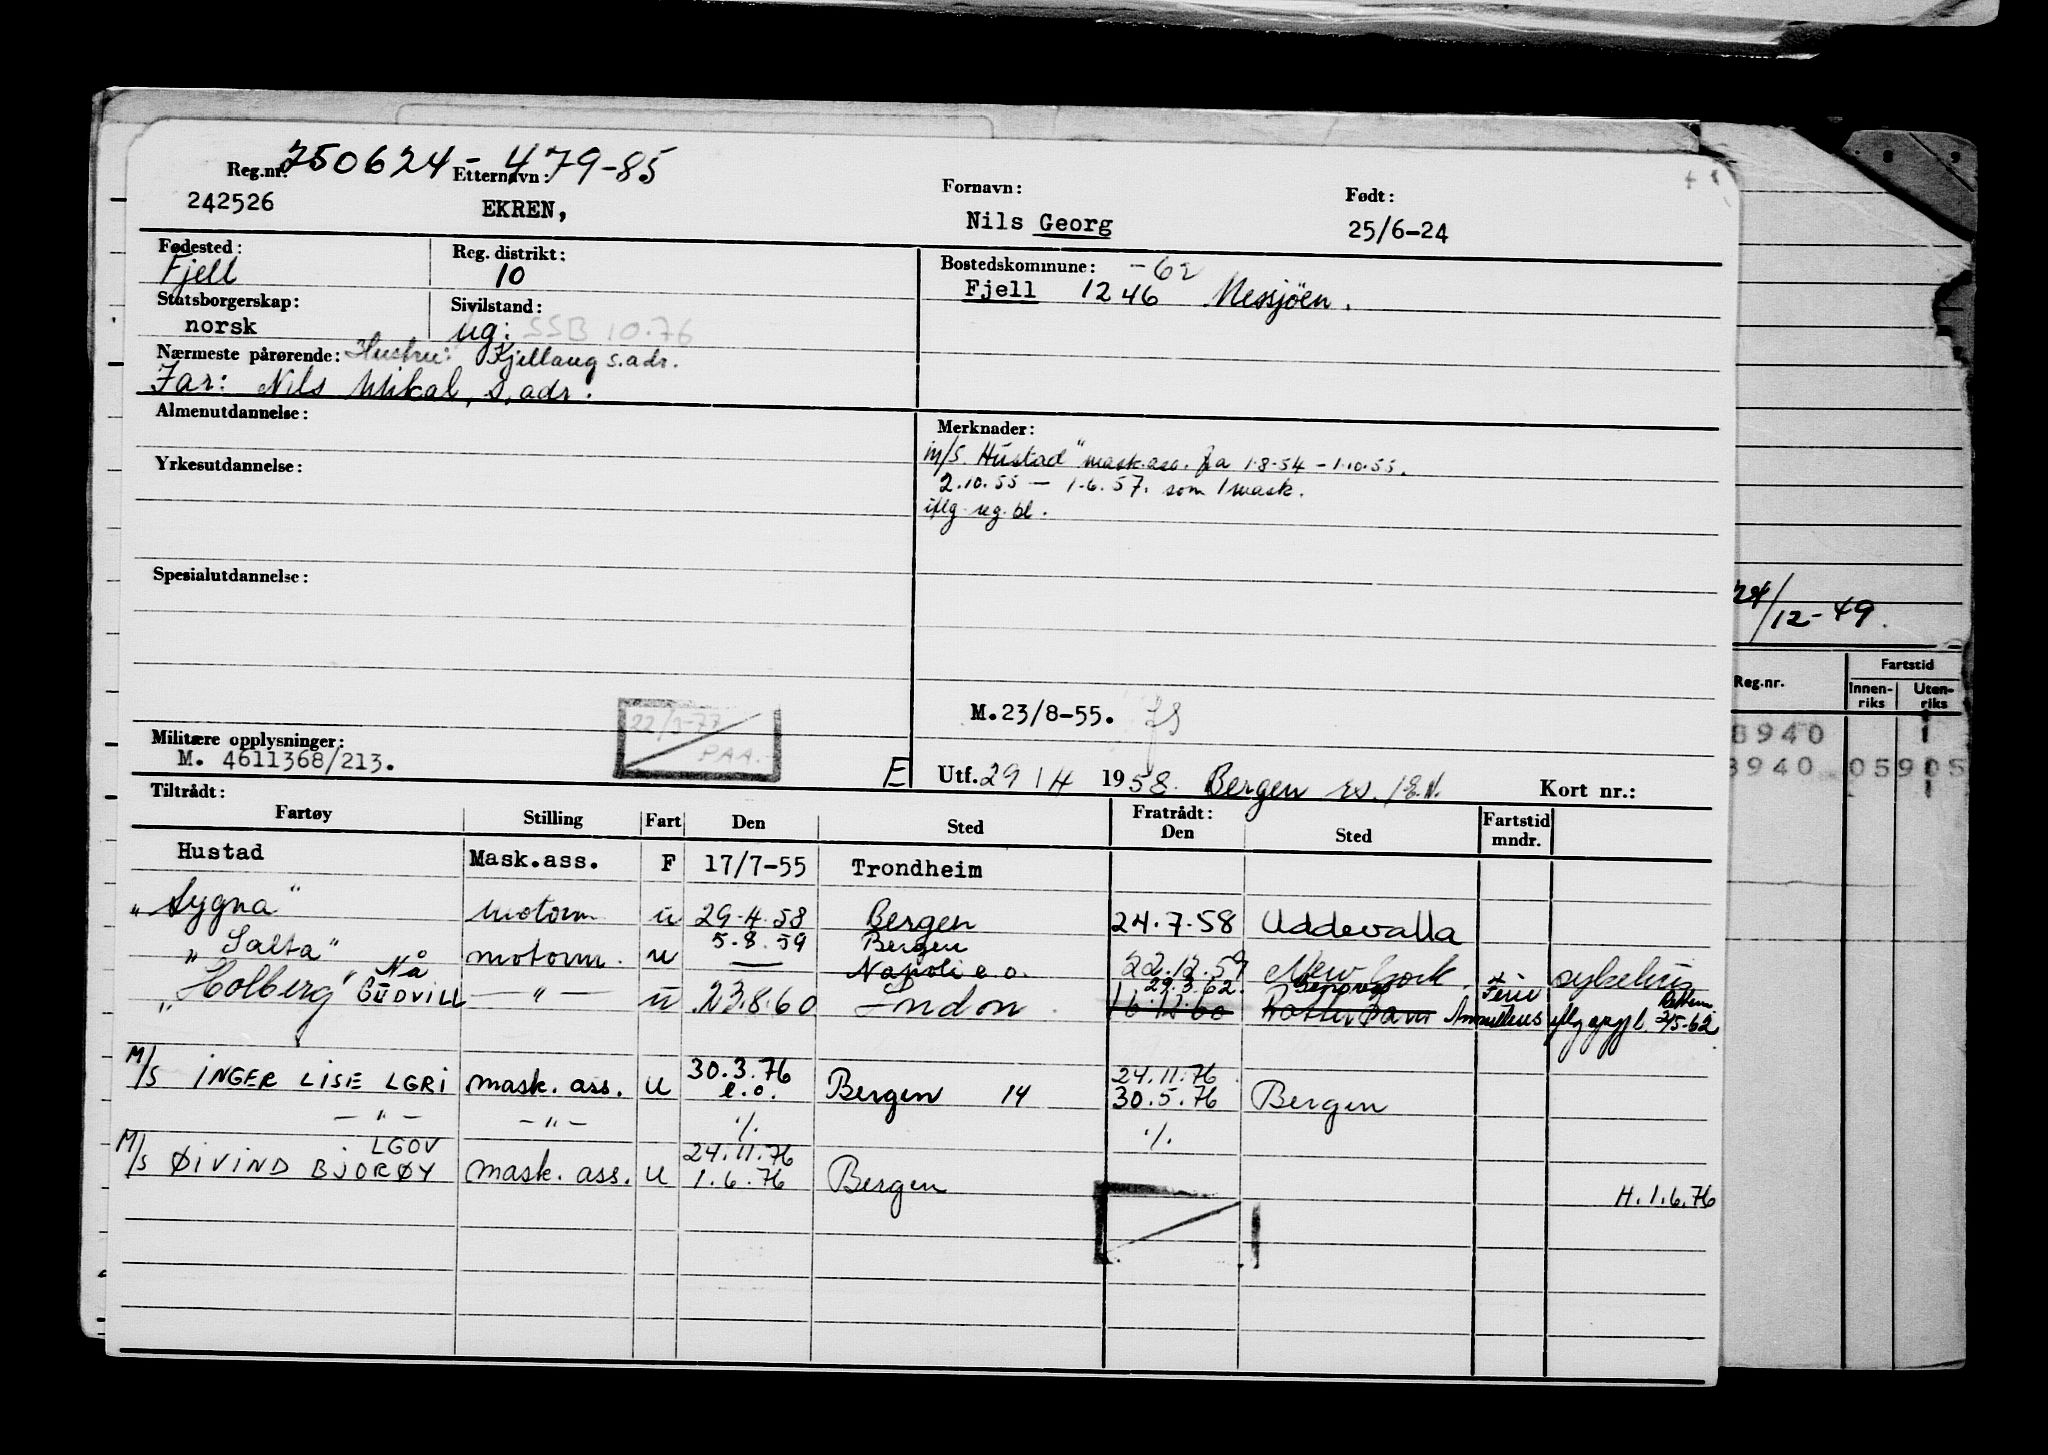 250624-47985
Reg.nr. Etternavn: Fornavn: Født:
242526 EKREN, Nils Georg 25/6-24
Fødested: Reg. distrikt: Bostedskommune: -62
Fjell 10 Fjell 1246
Statsborgerskap: Sivilstand:
norsk ug: SSB 10.76
Nærmeste pårørende: Hustru: Kjellaug s.adr.
Far: Nils Mikal, s. adr.
Almenutdannelse: Merknader:
m/s. Hustad" mask.ass. fra 1.8.54 - 1.10.55.
Yrkesutdannelse: 2.10.55 - 1.6.57. som 1 mask.
iflg. ug. bl.
Spesialutdannelse:
24/12-49.
Reg.nr. Fartstid
Innen-riks Uten-riks
22/3-77 PAA.-
M.23/8-55.
8940
Militære opplysninger:
M. 4611368/213.
8940 05905
E Utf. 29/4 1958. Bergen Kort nr.:
Tiltrådt: Fratrådt:
Fartøy Stilling Fart Den Sted Den Sted Fartstid mndr.
Hustad Mask.ass. F 17/7-55 Trondheim
"Sygna" motorm u 29.4.58 Bergen 24.7.58 Uddevalla
"Salta" motorm. u 5.8.59 Bergen 22.12.59 New York
Napoli e.o.
"Holberg" Nå GUDVILL -"- u 23.8.60 London 29.3.62. Genova Ferie
16.12.60 Rotterdam 2/5-62
M/S INGER LISE LGRI mask. ass. u 30.3.76 e.o. Bergen 14 24.11.76 30.5.76 Bergen
-"- -"- ./. ./.
M/S ØIVIND BJORØY LGOV mask. ass. u 24.11.76 1.6.76 Bergen H.1.6.76